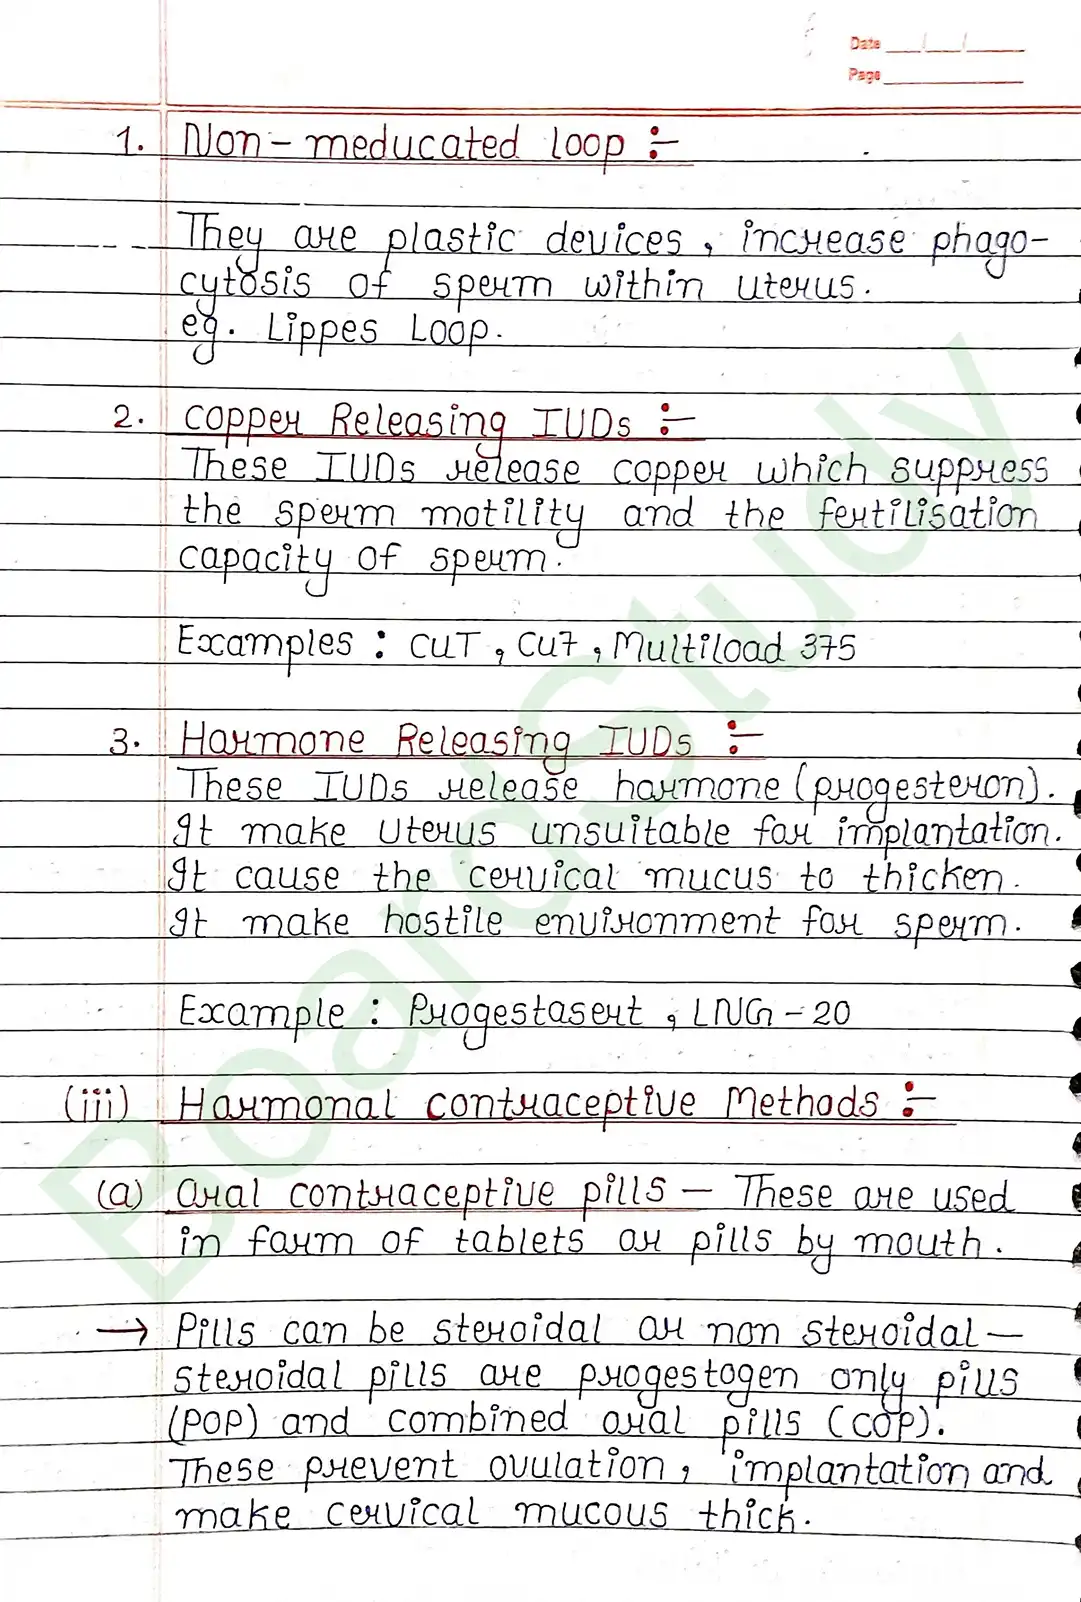 Date __/__/____
Page ________
1. Non-meducated loop :-
They are plastic devices, increase phago-
cytosis of sperm within uterus.
eg. Lippes Loop.
2. Copper Releasing IUDs :-
These IUDs release copper which suppress
the sperm motility and the fertilisation
capacity of sperm.
Examples : CUT, CU7, Multiload 375
3. Harmone Releasing IUDs :-
These IUDs release harmone (progesteron).
It make uterus unsuitable for implantation.
It cause the cervical mucus to thicken.
It make hostile environment for sperm.
Example : Progestasert, LNG-20
(iii) Harmonal contraceptive Methods :-
(a) oral contraceptive pills - These are used
in form of tablets or pills by mouth.
→ Pills can be steroidal or non steroidal -
steroidal pills are progestogen only pills
(POP) and combined oral pills (COP).
These prevent ovulation, implantation and
make cervical mucous thick.
BoardStudy